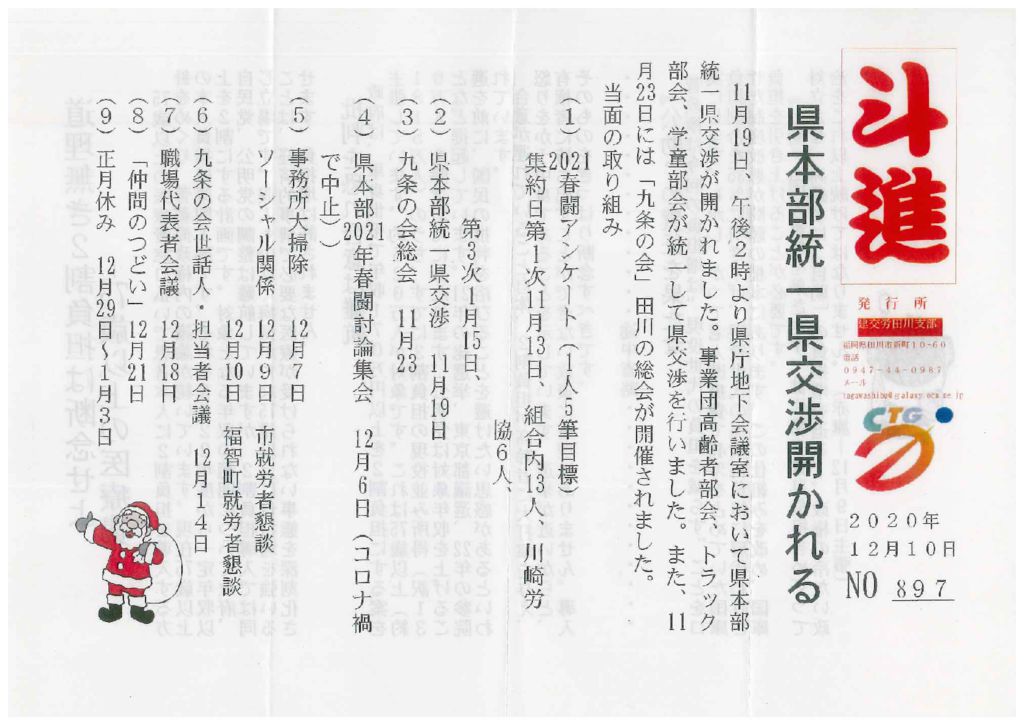 斗進
発行所
建交労田川支部
福岡県田川市新町10-60
電話
0947-44-0987
メール
tagawashibu@galaxy.ocn.ne.jp
CTG
2020年
12月10日
NO 897
県本部統一県交渉開かれる
11月19日、午後2時より県庁地下会議室において県本部
統一県交渉が開かれました。事業団高齢者部会、トラック
部会、学童部会が統一して県交渉を行いました。また、11
月23日には「九条の会」田川の総会が開催されました。
当面の取り組み
(1)2021春闘アンケート(1人5筆目標)
集約日第1次11月13日、組合内13人、川崎労
協6人、
第3次1月15日、
(2)県本部統一県交渉 11月19日
(3)九条の会総会 11月23
(4)県本部2021年春闘討論集会 12月6日(コロナ禍
で中止))
(5)事務所大掃除 12月7日
ソーシャル関係 12月9日 市就労者懇談
12月10日 福智町就労者懇談
(6)九条の会世話人・担当者会議 12月14日
(7)職場代表者会議 12月18日
(8)「仲間のつどい」 12月21日
(9)正月休み 12月29日~1月3日